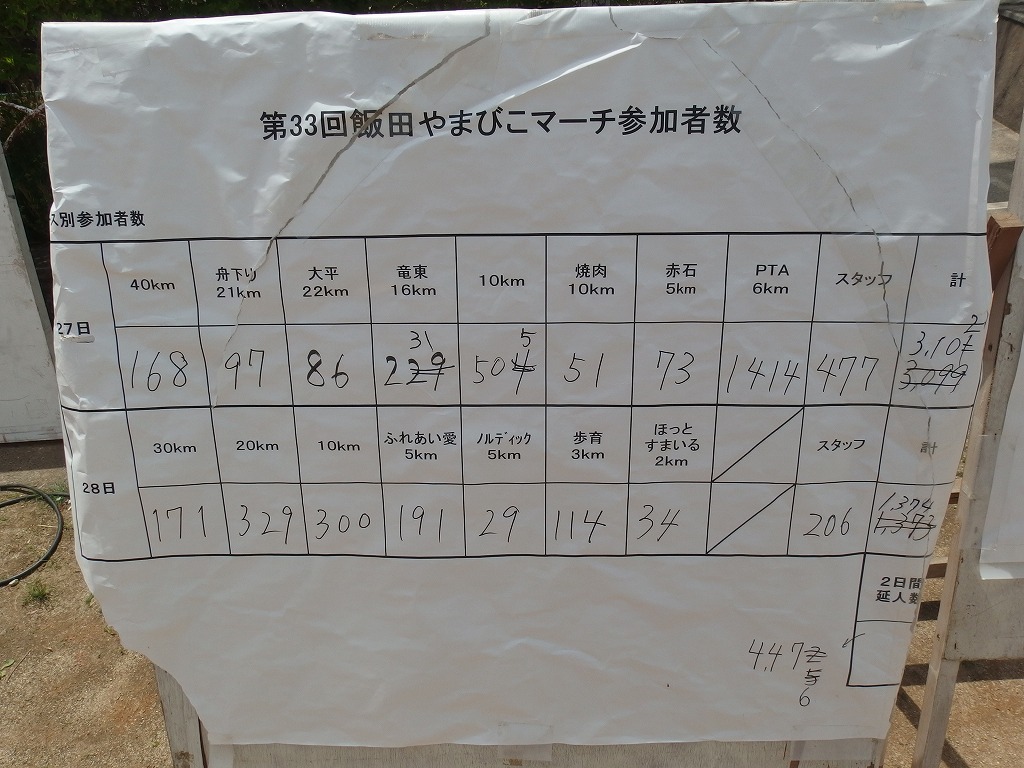 第33回飯田やまびこマーチ参加者数
ス別参加者数
27日 40km 舟下り 21km 大平 22km 竜東 16km 10km 焼肉 10km 赤石 5km PTA 6km スタッフ 計
31 5 2
168 97 86 229 504 51 73 1414 477 3,101
3,099
28日 30km 20km 10km ふれあい愛 5km ノルディック 5km 歩育 3km ほっと すまいる 2km スタッフ 計
1,374
171 329 300 191 29 114 34 206 1,373
2日間
延人数
4,472
5
6